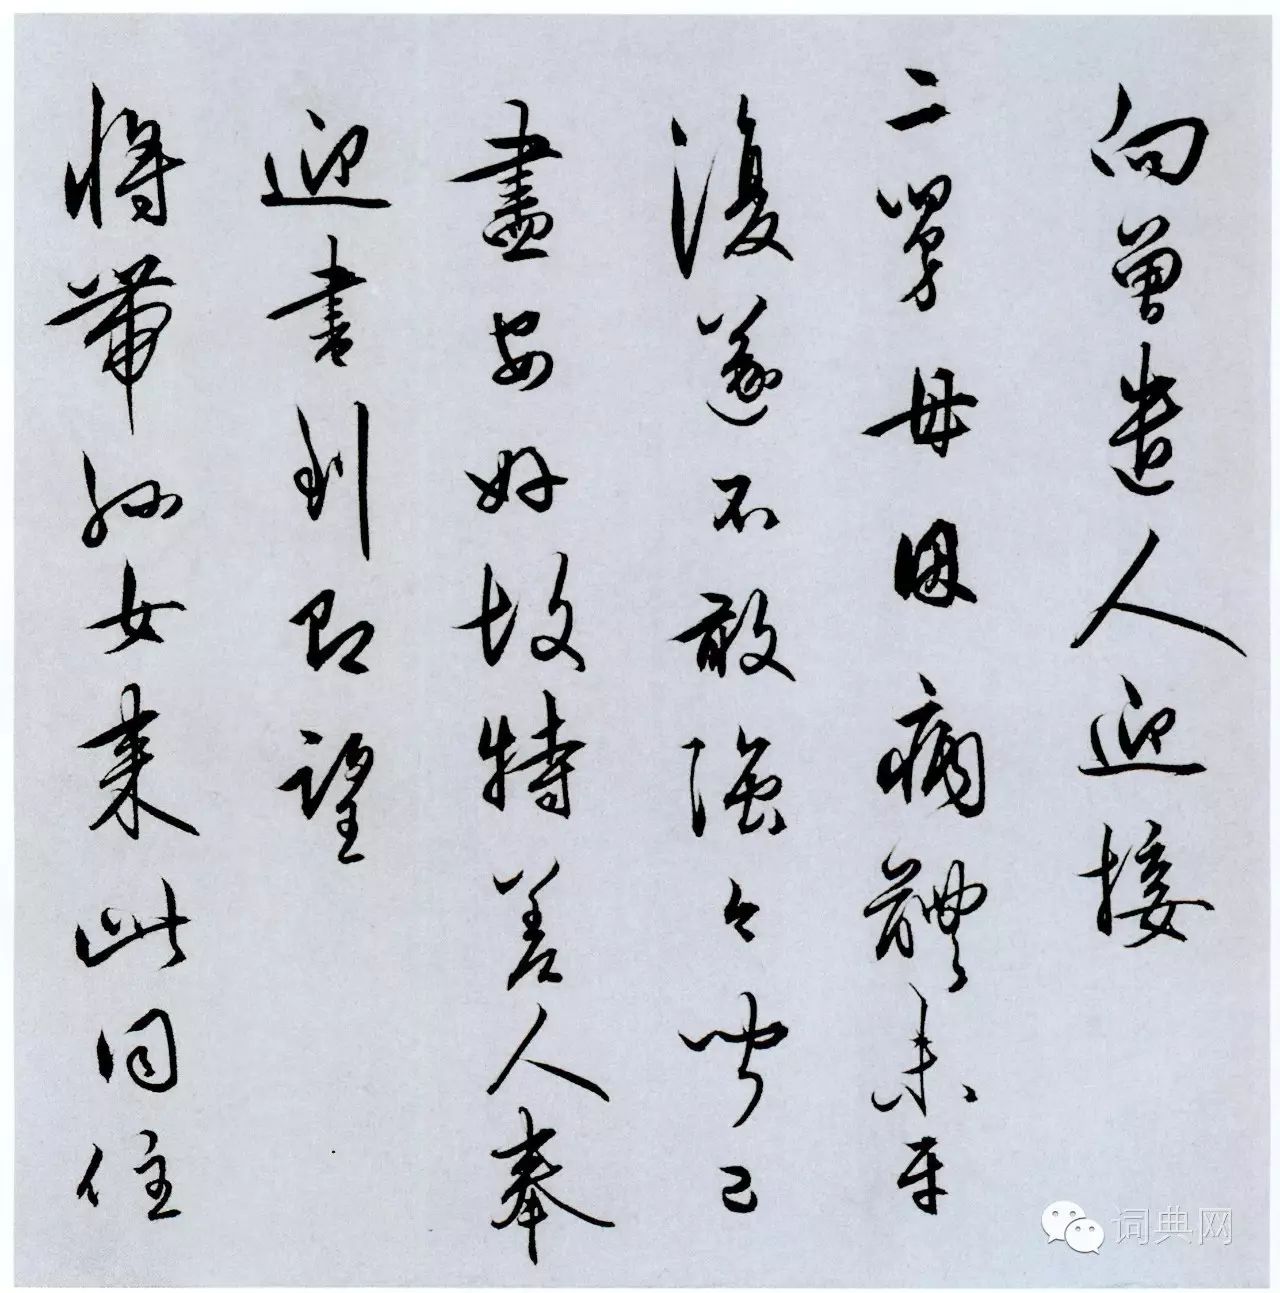 向曾遣人迎接
二舅母因病體未平
復遂不敢強今聞已
盡安好故特差人奉
迎書到即望
將帶孫女來此同住
词典网